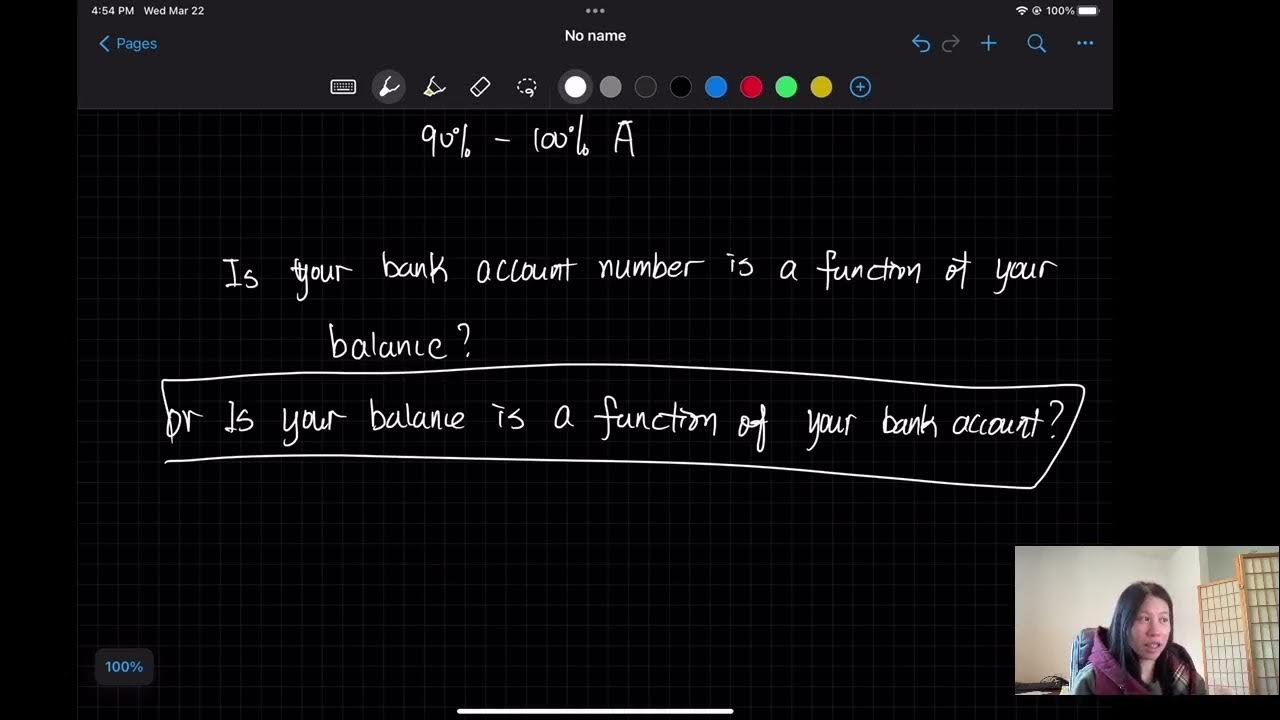 4:54 PM Wed Mar 22
100%
Pages
No name
90% - 100% A
Is your bank account number is a function of your
balance?
or Is your balance is a function of your bank account?
100%